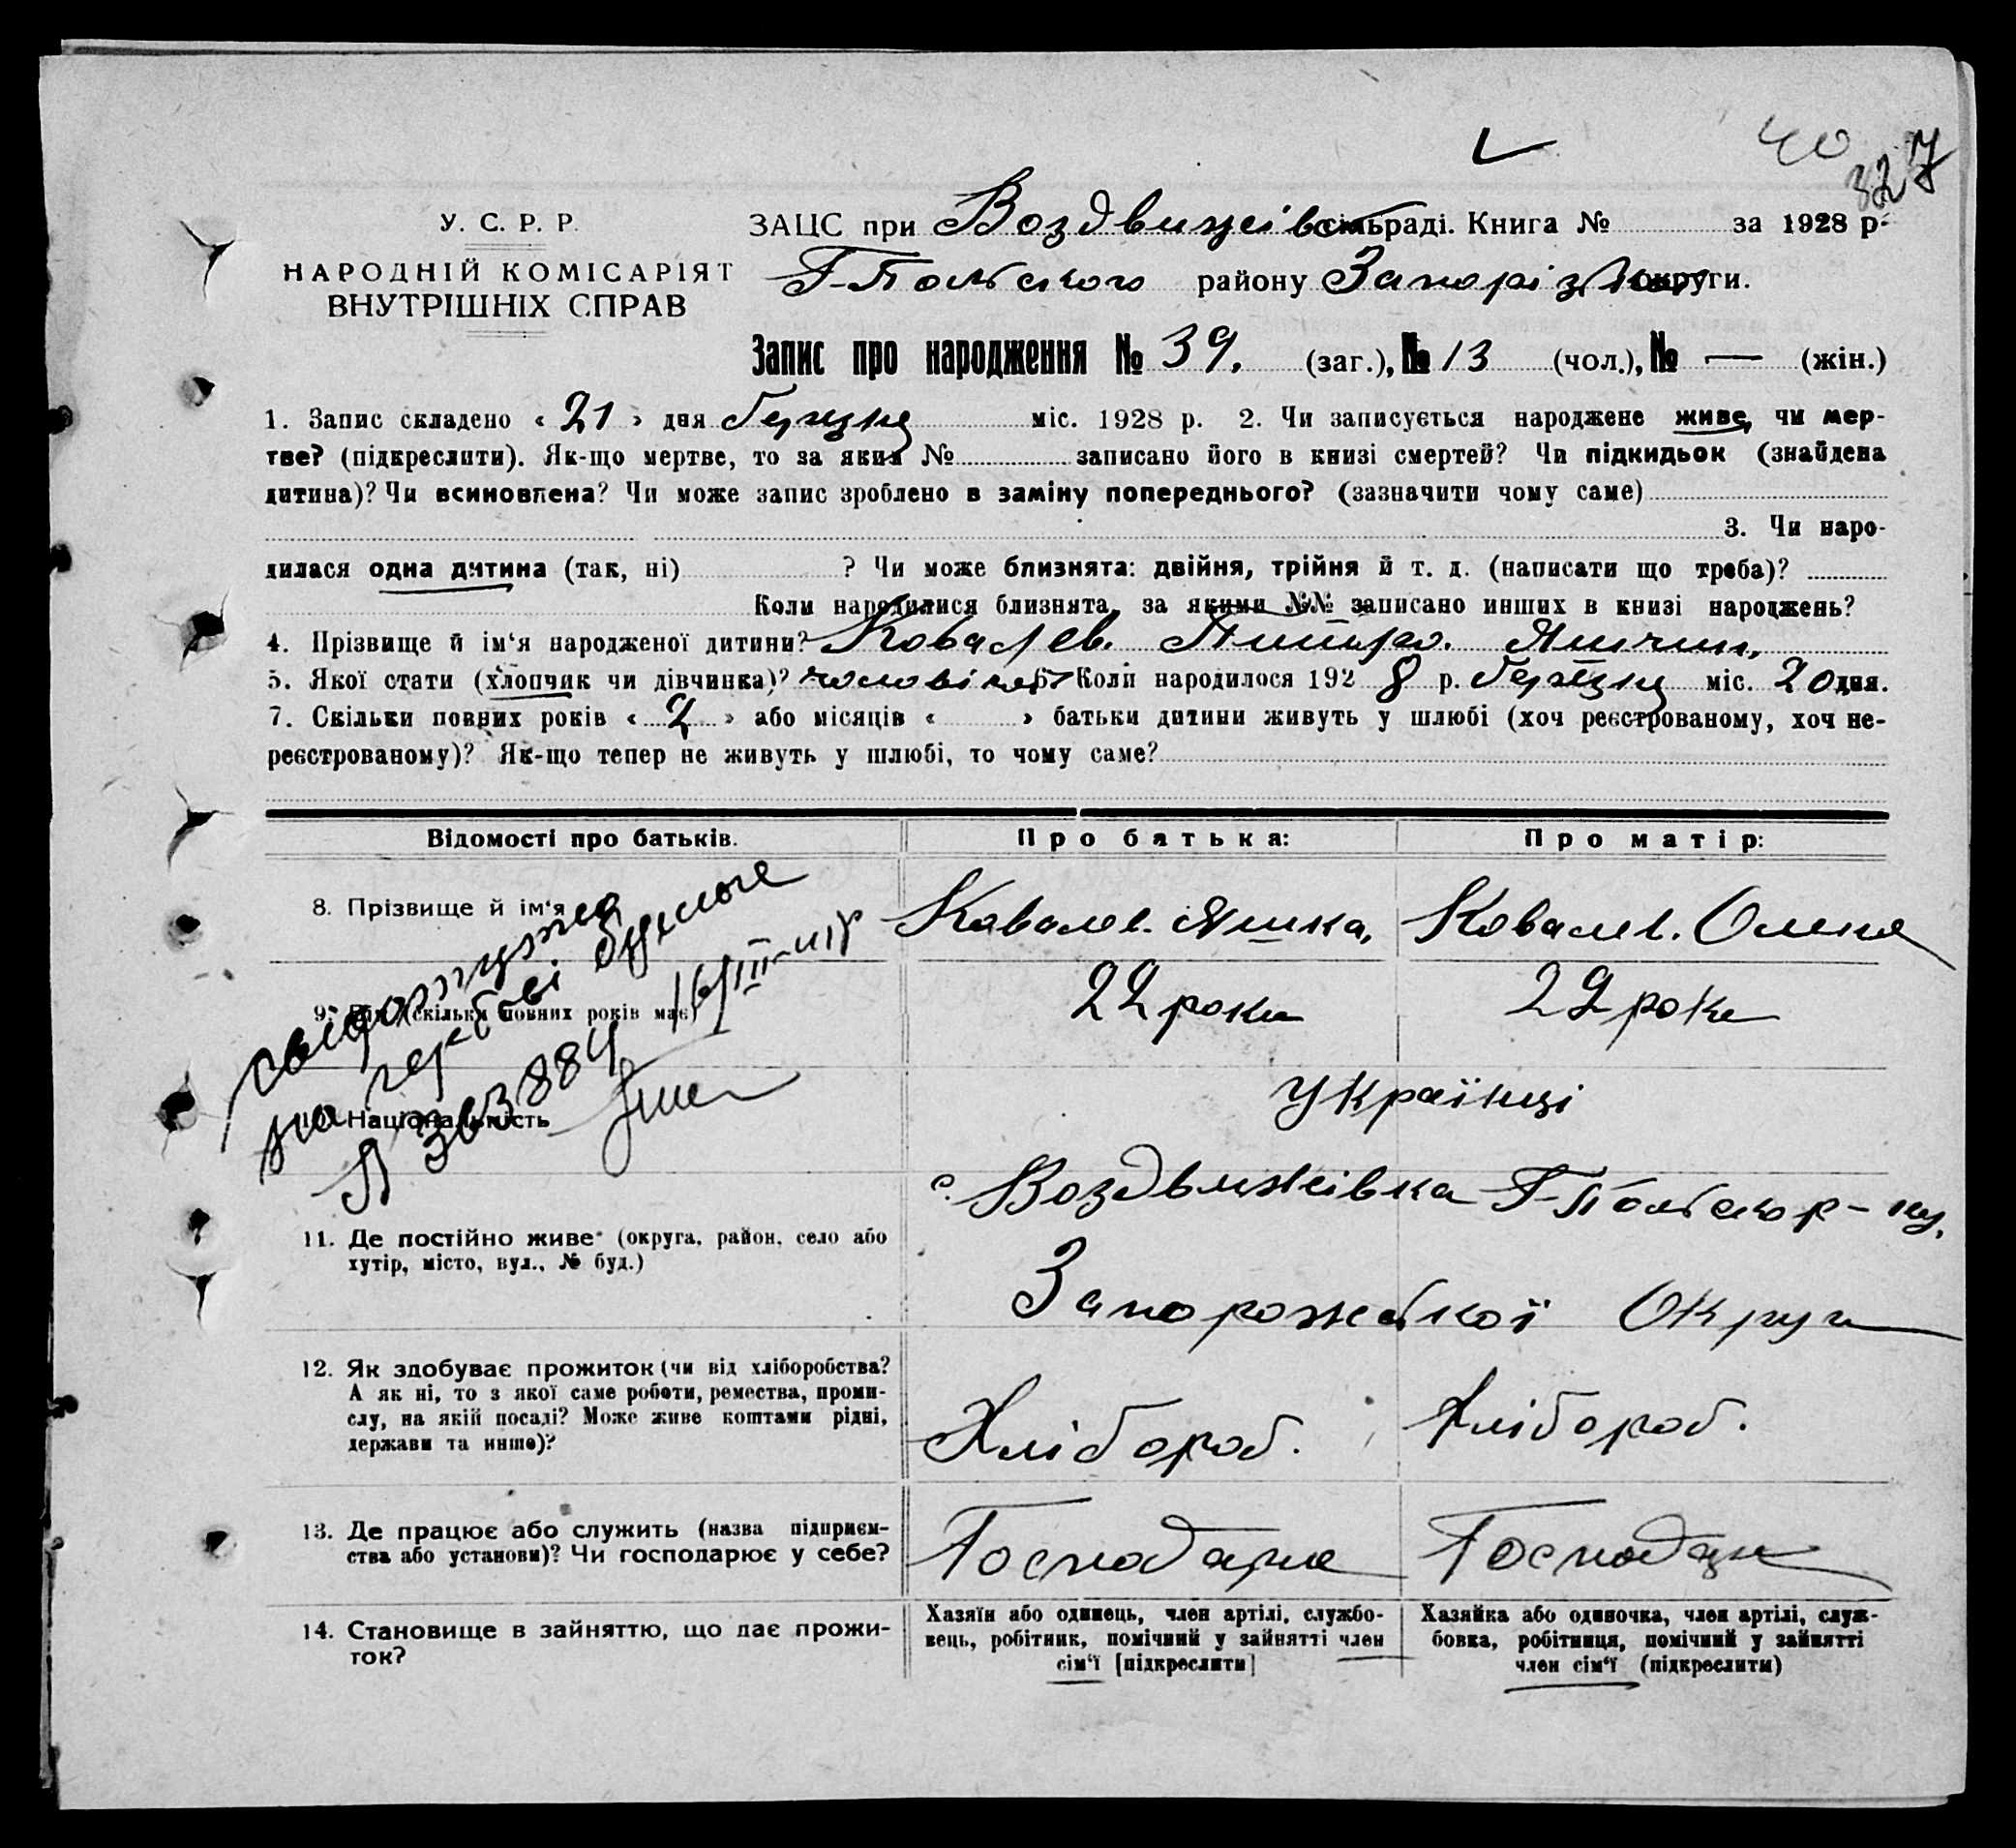 40
327
У. С. Р. Р.
НАРОДНІЙ КОМІСАРІЯТ
ВНУТРІШНІХ СПРАВ
ЗАЦС при Воздвижівськ сільраді. Книга № за 1928 р.
Г-Польського району Запорізької округи.
Запис про народження № 39. (заг.), № 13 (чол.), № — (жін.)
1. Запис складено « 21 » дня Грудня міс. 1928 р. 2. Чи записується народжене живе, чи мер-
тве? (підкреслити). Як-що мертве, то за яким № записано його в книзі смертей? Чи підкидьок (знайдена
дитина)? Чи всиновлена? Чи може запис зроблено в заміну попереднього? (зазначити чому саме)
3. Чи наро-
дилася одна дитина (так, ні) ? Чи може близнята: двійня, трійня й т. д. (написати що треба)?
Коли народилися близнята, за якими №№ записано инших в книзі народжень?
4. Прізвище й ім‘я народженої дитини? Ковалев.
5. Якої стати (хлопчик чи дівчинка)? 6. Коли народилося 192 8 р. міс. 20 дня.
7. Скільки повних років « 2 » або місяців « » батьки дитини живуть у шлюбі (хоч реєстрованому, хоч не-
реєстрованому)? Як-що тепер не живуть у шлюбі, то чому саме?
Відомості про батьків. Про батька: Про матір:
8. Прізвище й ім‘я Ковалев. Яшка, Ковалев. Олена
9. Вік (скільки повних років має) 22 роки 22 роки
10. Національність Українці
363884
11. Де постійно живе (округа, район, село або
хутір, місто, вул., № буд.)
с. Воздвижівка Г-Польськ р-ну,
Запорожської Округи
12. Як здобуває прожиток (чи від хліборобства?
А як ні, то з якої саме роботи, ремества, проми-
слу, на якій посаді? Може живе коштами рідні,
держави та инше)?
Хлібороб. Хлібороб.
13. Де працює або служить (назва підприєм-
ства або установи)? Чи господарює у себе?
Господарює
14. Становище в зайняттю, що дає прожи-
ток?
Хазяїн або одинець, член артілі, службо-
вець, робітник, помічний у зайнятті член
сім‘ї [підкреслити]
Хазяйка або одиночка, член артілі, служ-
бовка, робітниця, помічний у зайнятті
член сім‘ї (підкреслити)